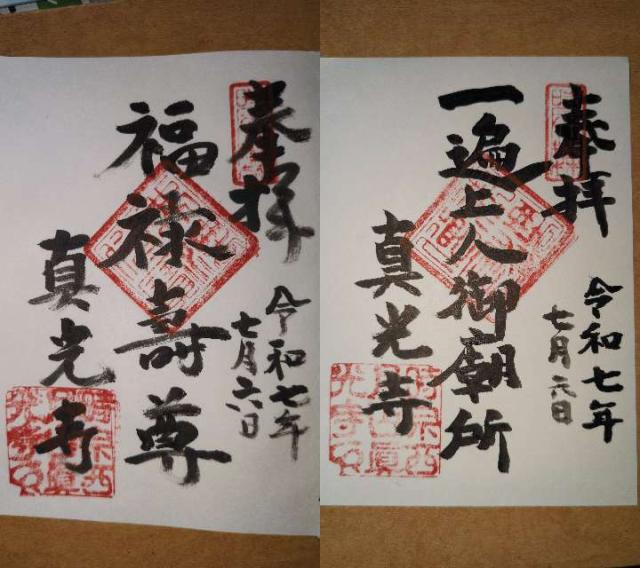 奉拝
令和七年
七月六日
福禄寿尊
真光寺
奉拝
令和七年
七月六日
一遍上人御廟所
真光寺